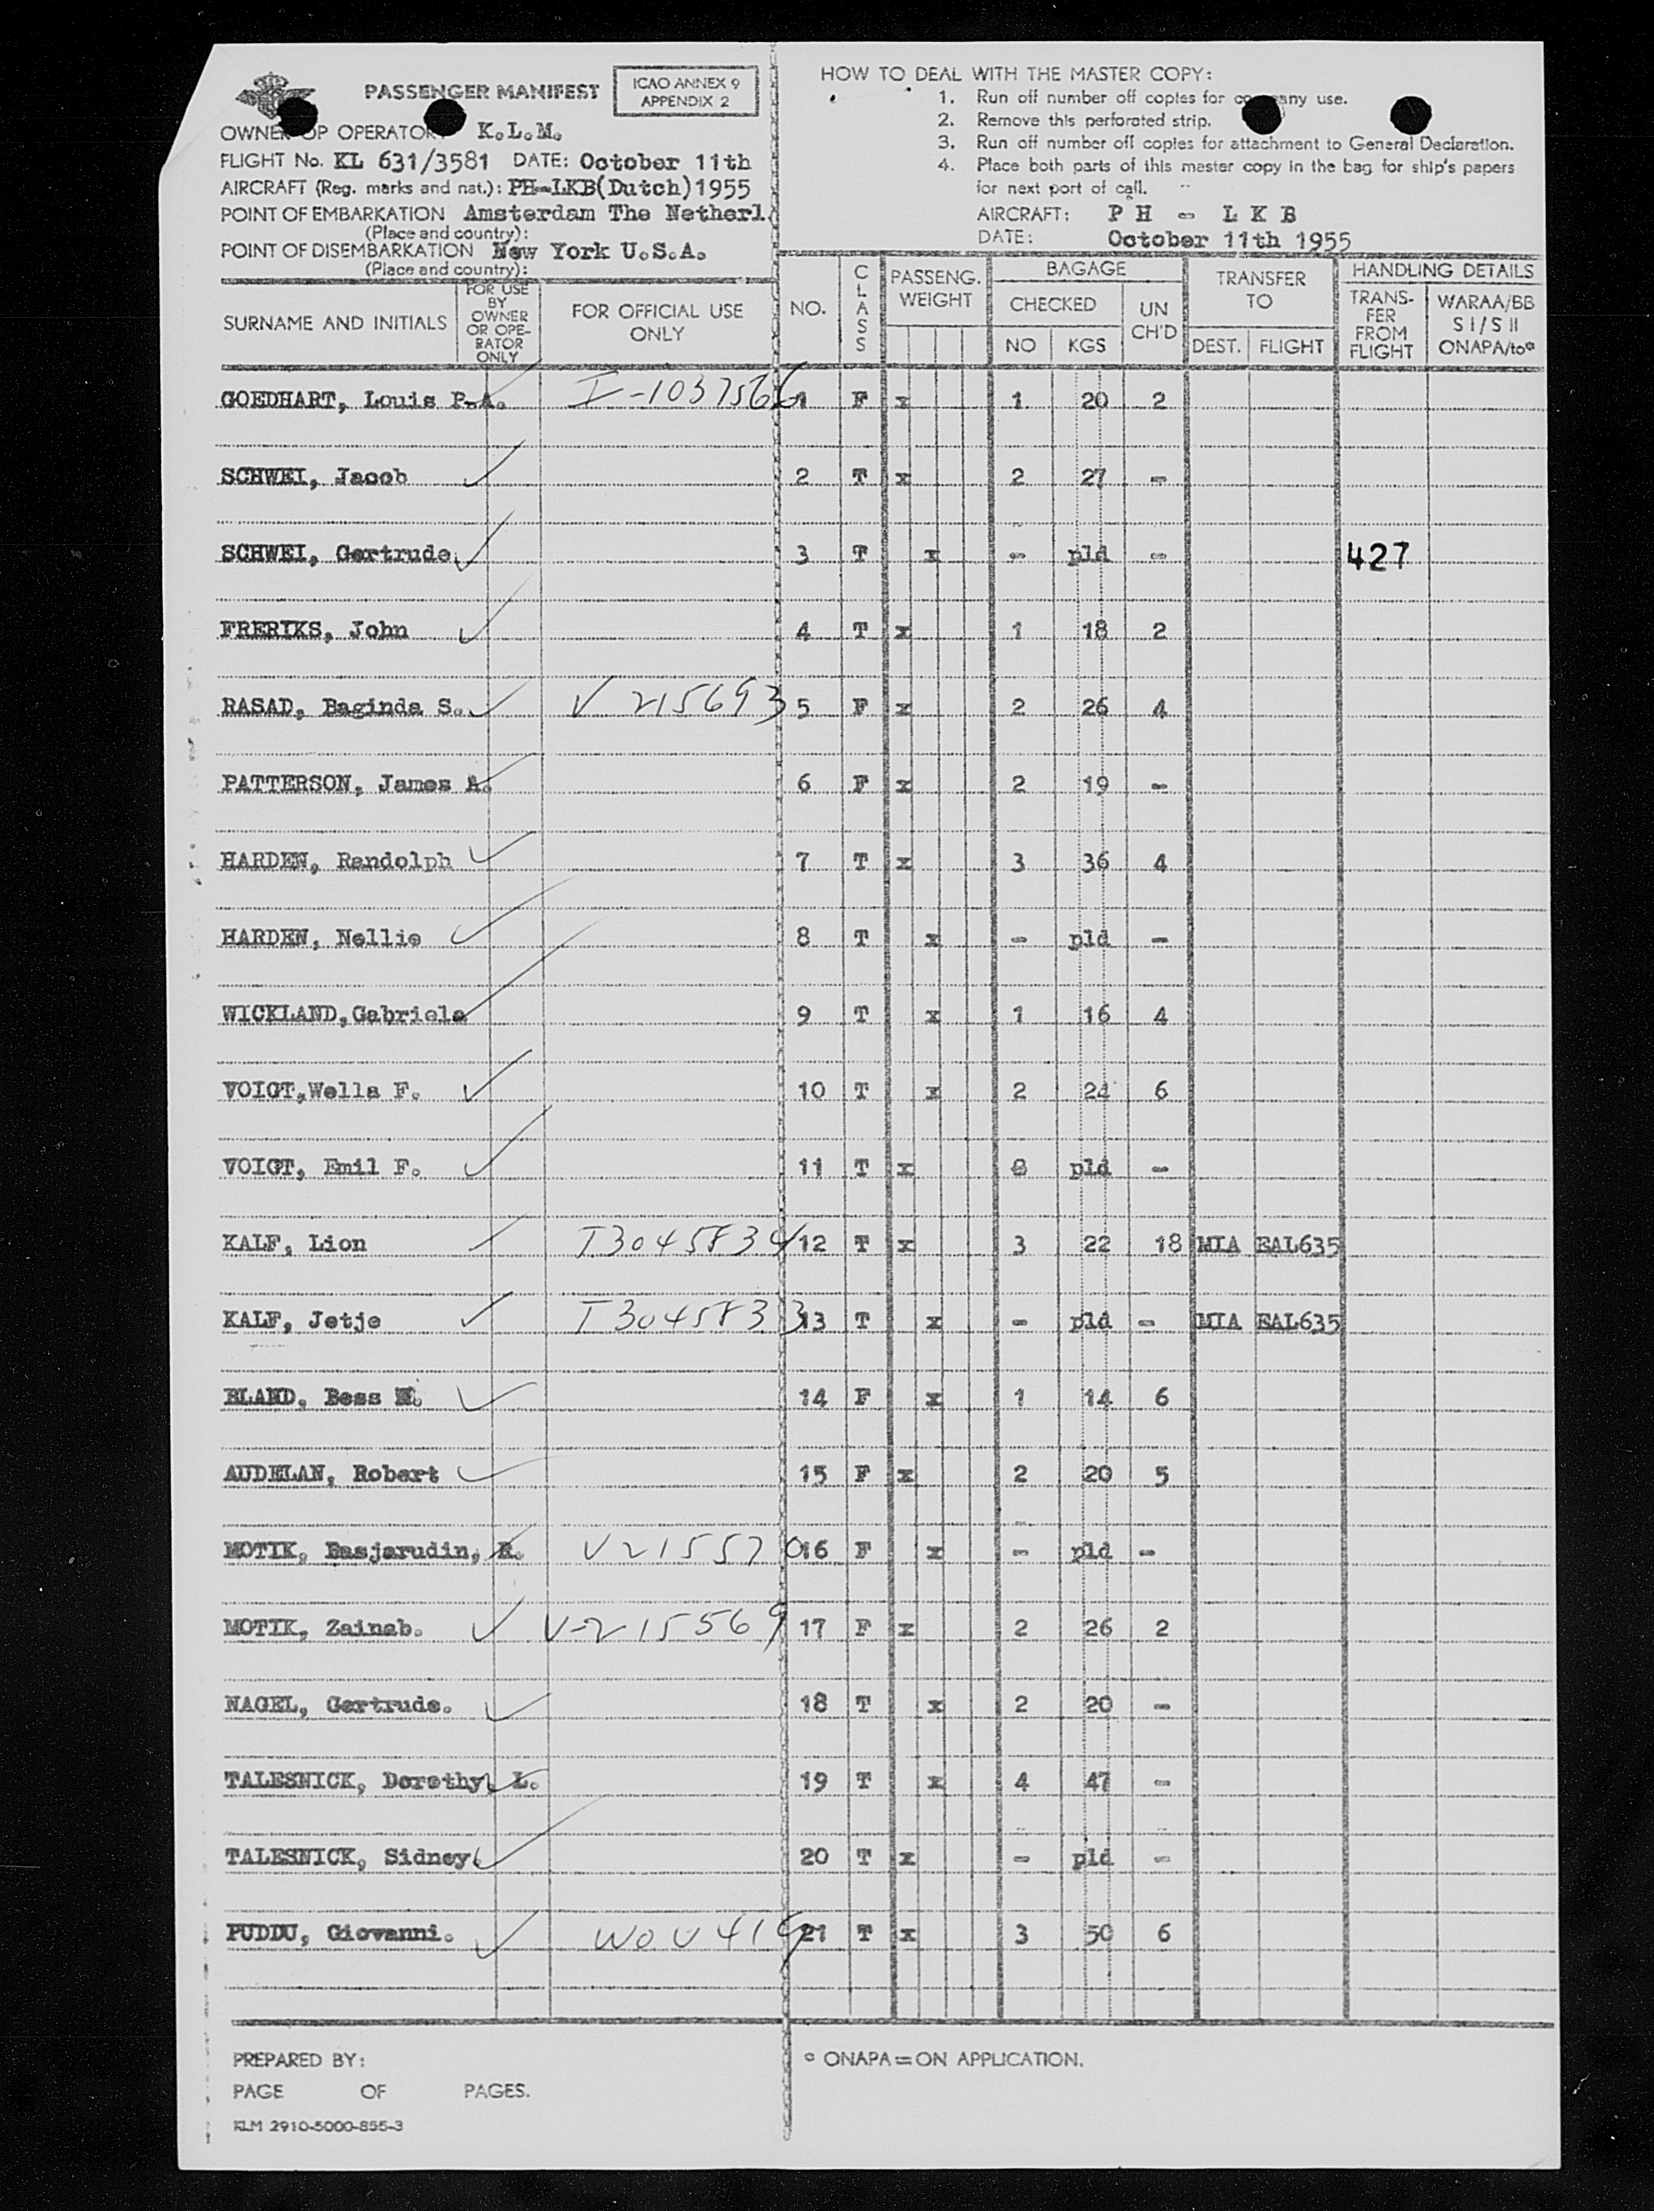 PASSENGER MANIFEST
ICAO ANNEX 9
APPENDIX 2
OWNER OP OPERATOR K.L.M.
FLIGHT No. KL 631/3581 DATE: October 11th
AIRCRAFT (Reg. marks and nat.): PH-LKB(Dutch)1955
POINT OF EMBARKATION Amsterdam The Netherl.
(Place and country):
POINT OF DISEMBARKATION New York U.S.A.
(Place and country):
HOW TO DEAL WITH THE MASTER COPY:
1. Run off number off copies for company use.
2. Remove this perforated strip.
3. Run off number off copies for attachment to General Declaration.
4. Place both parts of this master copy in the bag for ship's papers
for next port of call.
AIRCRAFT: P H - L K B
DATE: October 11th 1955
SURNAME AND INITIALS
FOR USE
BY
OWNER
OR OPE-
RATOR
ONLY
FOR OFFICIAL USE
ONLY
NO.
CLASS
PASSENG.
WEIGHT
BAGAGE
CHECKED
NO KGS
UN
CH'D
TRANSFER
TO
DEST. FLIGHT
HANDLING DETAILS
TRANS-
FER
FROM
FLIGHT
WARAA/BB
S I / S II
ONAPA/to*
GOEDHART, Louis P.A. I-1037566 1 F x 1 20 2
SCHWEI, Jacob 2 T x 2 27 -
SCHWEI, Gertrude 3 T x - pld - 427
FRERIKS, John 4 T x 1 18 2
RASAD, Baginda S. V 215693 5 F x 2 26 4
PATTERSON, James A. 6 F x 2 19 -
HARDEN, Randolph 7 T x 3 36 4
HARDEN, Nellie 8 T x - pld -
WICKLAND,Gabriele 9 T x 1 16 4
VOIGT,Wella F. 10 T x 2 24 6
VOIGT, Emil F. 11 T x pld -
KALF, Lion I3045834 12 T x 3 22 18 MIA EAL635
KALF, Jetje I3045833 13 T x - pld - MIA EAL635
BLAND, Bess 14 F x 1 14 6
AUDELAN, Robert 15 F x 2 20 5
MOTIK, Basjarudin, R. V215570 16 F x - pld -
MOTIK, Zainab. V-215569 17 F x 2 26 2
NAGEL, Gertrude. 18 T x 2 20 -
TALESNICK, Dorothy L. 19 T x 4 47 -
TALESNICK, Sidney 20 T x - pld -
PUDDU, Giovanni. 21 T x 3 50 6
PREPARED BY:
PAGE OF PAGES.
KLM 2910-5000-855-3
* ONAPA=ON APPLICATION.